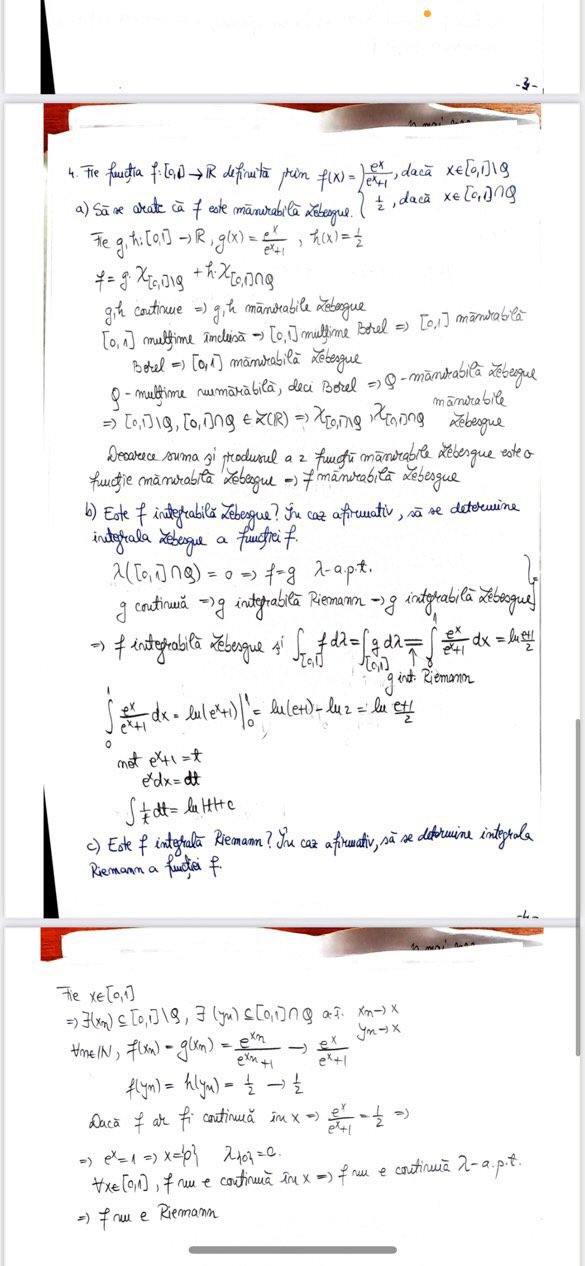 -3-
4. Fie funcția f:[0,1]→ℝ definită prin f(x)= { e^x/(e^x+1), dacă x∈[0,1]\Q
1/2, dacă x∈[0,1]∩Q
a) Să se arate că f este măsurabilă Lebesgue.
Fie g,h:[0,1]→ℝ, g(x)= e^x/(e^x+1), h(x)=1/2
f=g·χ_[0,1]\Q + h·χ_[0,1]∩Q
g,h continue => g,h măsurabile Lebesgue
[0,1] mulțime închisă => [0,1] mulțime Borel => [0,1] măsurabilă
Borel => [0,1] măsurabilă Lebesgue
Q - mulțime numărabilă, deci Borel => Q - măsurabilă Lebesgue
=> [0,1]\Q, [0,1]∩Q ∈ ℒ(ℝ) => χ_[0,1]\Q, χ_[0,1]∩Q măsurabile Lebesgue
Deoarece suma și produsul a 2 funcții măsurabile Lebesgue este o
funcție măsurabilă Lebesgue => f măsurabilă Lebesgue
b) Este f integrabilă Lebesgue? În caz afirmativ, să se determine
integrala Lebesgue a funcției f.
λ([0,1]∩Q) = 0 => f=g λ-a.p.t.
g continuă => g integrabilă Riemann => g integrabilă Lebesgue
=> f integrabilă Lebesgue și ∫_[0,1] f dλ = ∫_[0,1] g dλ = ∫_0^1 e^x/(e^x+1) dx = ln (e+1)/2
g int. Riemann
∫_0^1 e^x/(e^x+1) dx = ln(e^x+1)|_0^1 = ln(e+1) - ln 2 = ln (e+1)/2
not e^x+1 = t
e^x dx = dt
∫ 1/t dt = ln|t|+c
c) Este f integrală Riemann? În caz afirmativ, să se determine integrala
Riemann a funcției f.
-4-
Fie x∈[0,1]
=> ∃(xn)⊆[0,1]\Q, ∃(yn)⊆[0,1]∩Q a.î. xn→x
yn→x
∀n∈ℕ, f(xn) = g(xn) = e^xn/(e^xn+1) → e^x/(e^x+1)
f(yn) = h(yn) = 1/2 → 1/2
Dacă f ar fi continuă în x => e^x/(e^x+1) = 1/2 =>
=> e^x=1 => x={0} λ{0}=0.
∀x∈[0,1], f nu e continuă în x => f nu e continuă λ-a.p.t.
=> f nu e Riemann